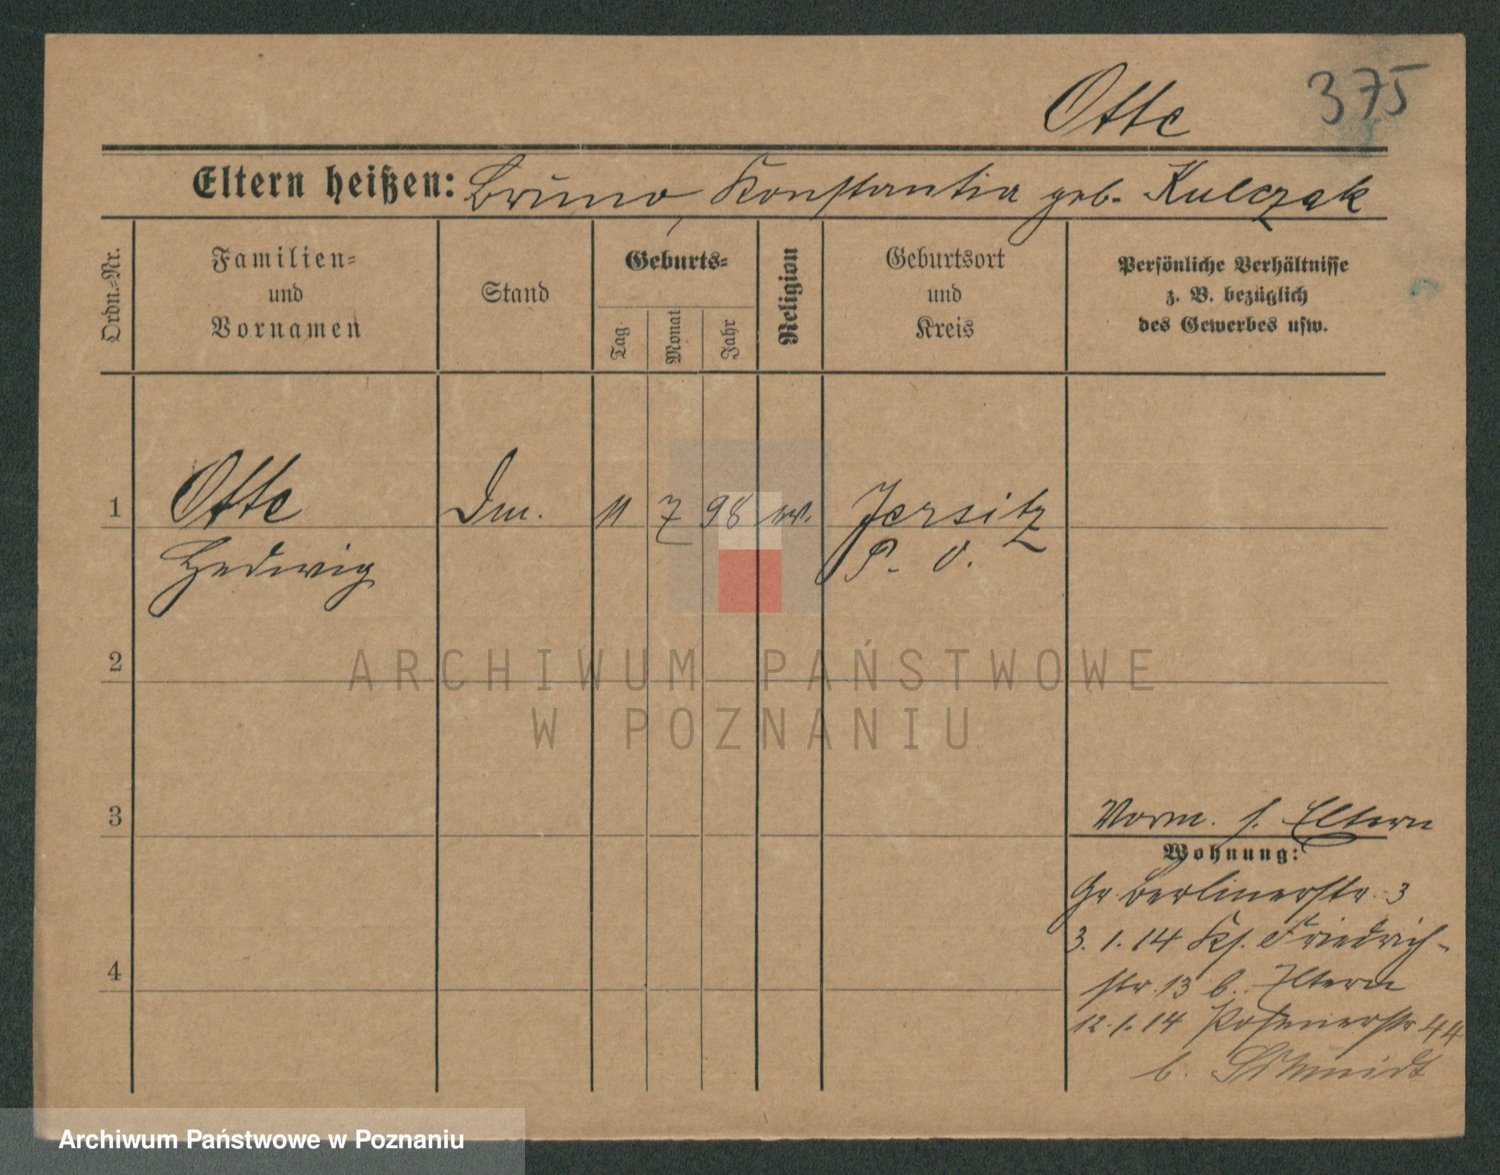 Otte 375
Eltern heißen: Bruno, Konstantia geb. Kulczak
Ordn.=Nr.
Familien=
und
Vornamen
Stand
Geburts=
Tag
Monat
Jahr
Religion
Geburtsort
und
Kreis
Persönliche Verhältnisse
z. B. bezüglich
des Gewerbes usw.
1 Otte 11 7 98 Jersitz
Hedwig P. O.
2
ARCHIWUM PAŃSTWOWE
W POZNANIU
3 Vorm. s. Eltern
Wohnung:
Gr. Berlinerstr. 3
3. 1. 14 Ks. Friedrich-
4 str. 13 b. Eltern
12. 1. 14 Posenerstr. 44
b. Schmidt
Archiwum Państwowe w Poznaniu